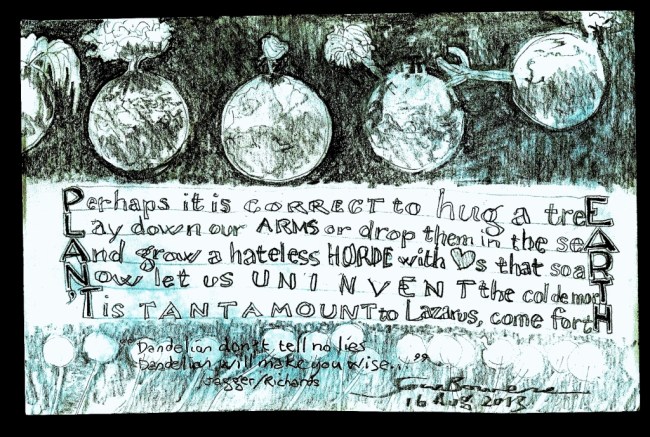 Perhaps it is CORRECT to hug a treE
Lay down our ARMS or drop them in the seA
And grow a hateless HORDE with ♥s that soaR
Now let us UNINVENT the col de morT
'Tis TANTAMOUNT to Lazarus, come fortH
"Dandelion don't tell no lies
Dandelion will make you wise..."
Jagger/Richards
16 Aug 2013